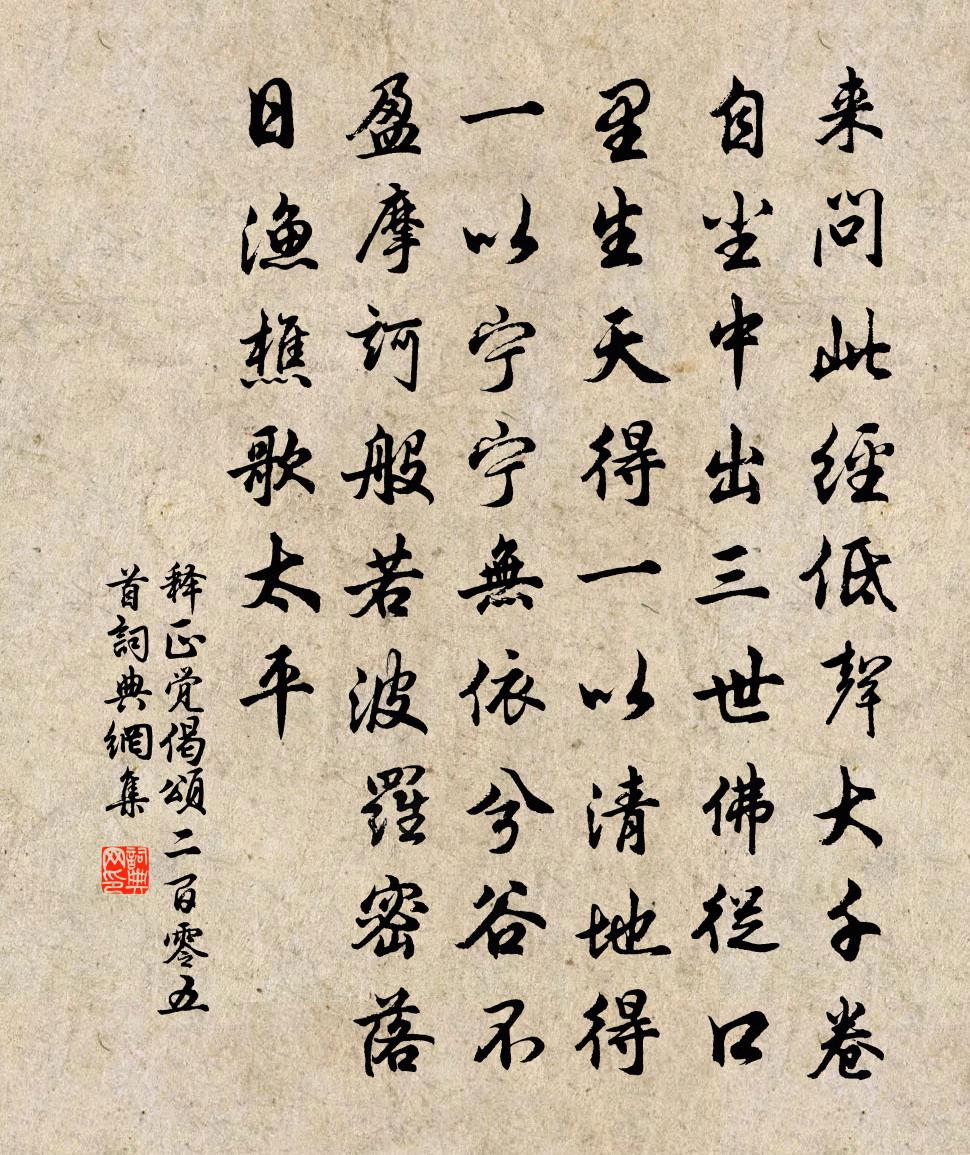 来問此經低聲大千卷
自尘中出三世佛從口
里生天得一以清地得
一以宁宁無依兮谷不
盈摩訶般若波羅密落
日渔樵歌太平
释正觉偈頌二百零五
首詞典網集
詞典网印